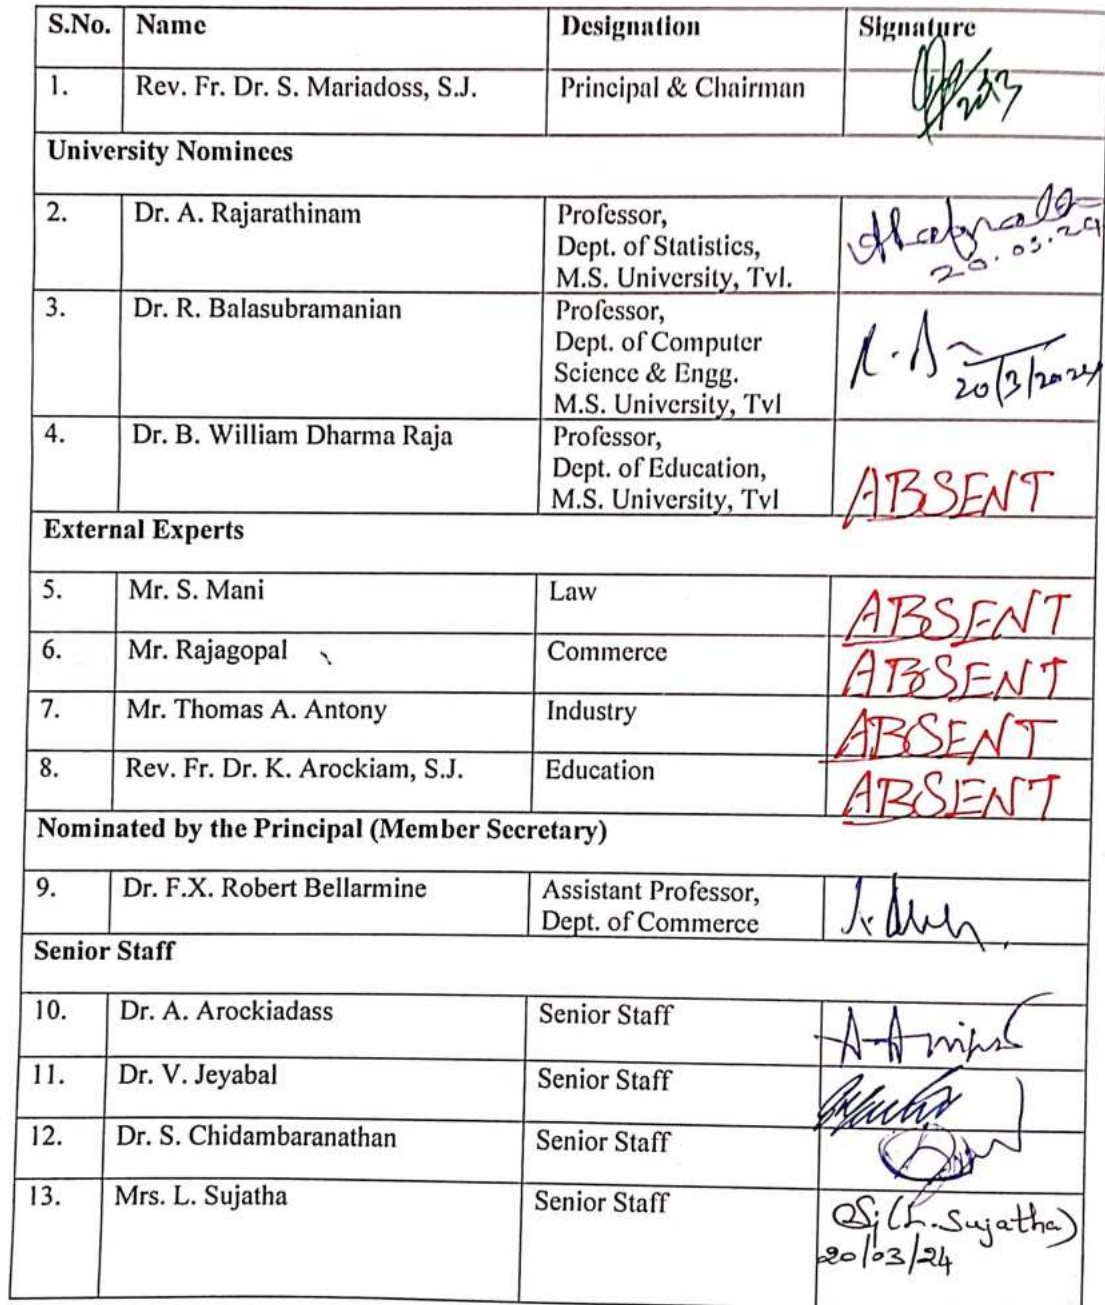 S.No. Name Designation Signature
1. Rev. Fr. Dr. S. Mariadoss, S.J. Principal & Chairman
University Nominees
2. Dr. A. Rajarathinam Professor,
Dept. of Statistics,
M.S. University, Tvl.
20.03.24
3. Dr. R. Balasubramanian Professor,
Dept. of Computer
Science & Engg.
M.S. University, Tvl
20/3/2024
4. Dr. B. William Dharma Raja Professor,
Dept. of Education,
M.S. University, Tvl
ABSENT
External Experts
5. Mr. S. Mani Law ABSENT
6. Mr. Rajagopal Commerce ABSENT
7. Mr. Thomas A. Antony Industry ABSENT
8. Rev. Fr. Dr. K. Arockiam, S.J. Education ABSENT
Nominated by the Principal (Member Secretary)
9. Dr. F.X. Robert Bellarmine Assistant Professor,
Dept. of Commerce
Senior Staff
10. Dr. A. Arockiadass Senior Staff
11. Dr. V. Jeyabal Senior Staff
12. Dr. S. Chidambaranathan Senior Staff
13. Mrs. L. Sujatha Senior Staff (L. Sujatha)
20/03/24